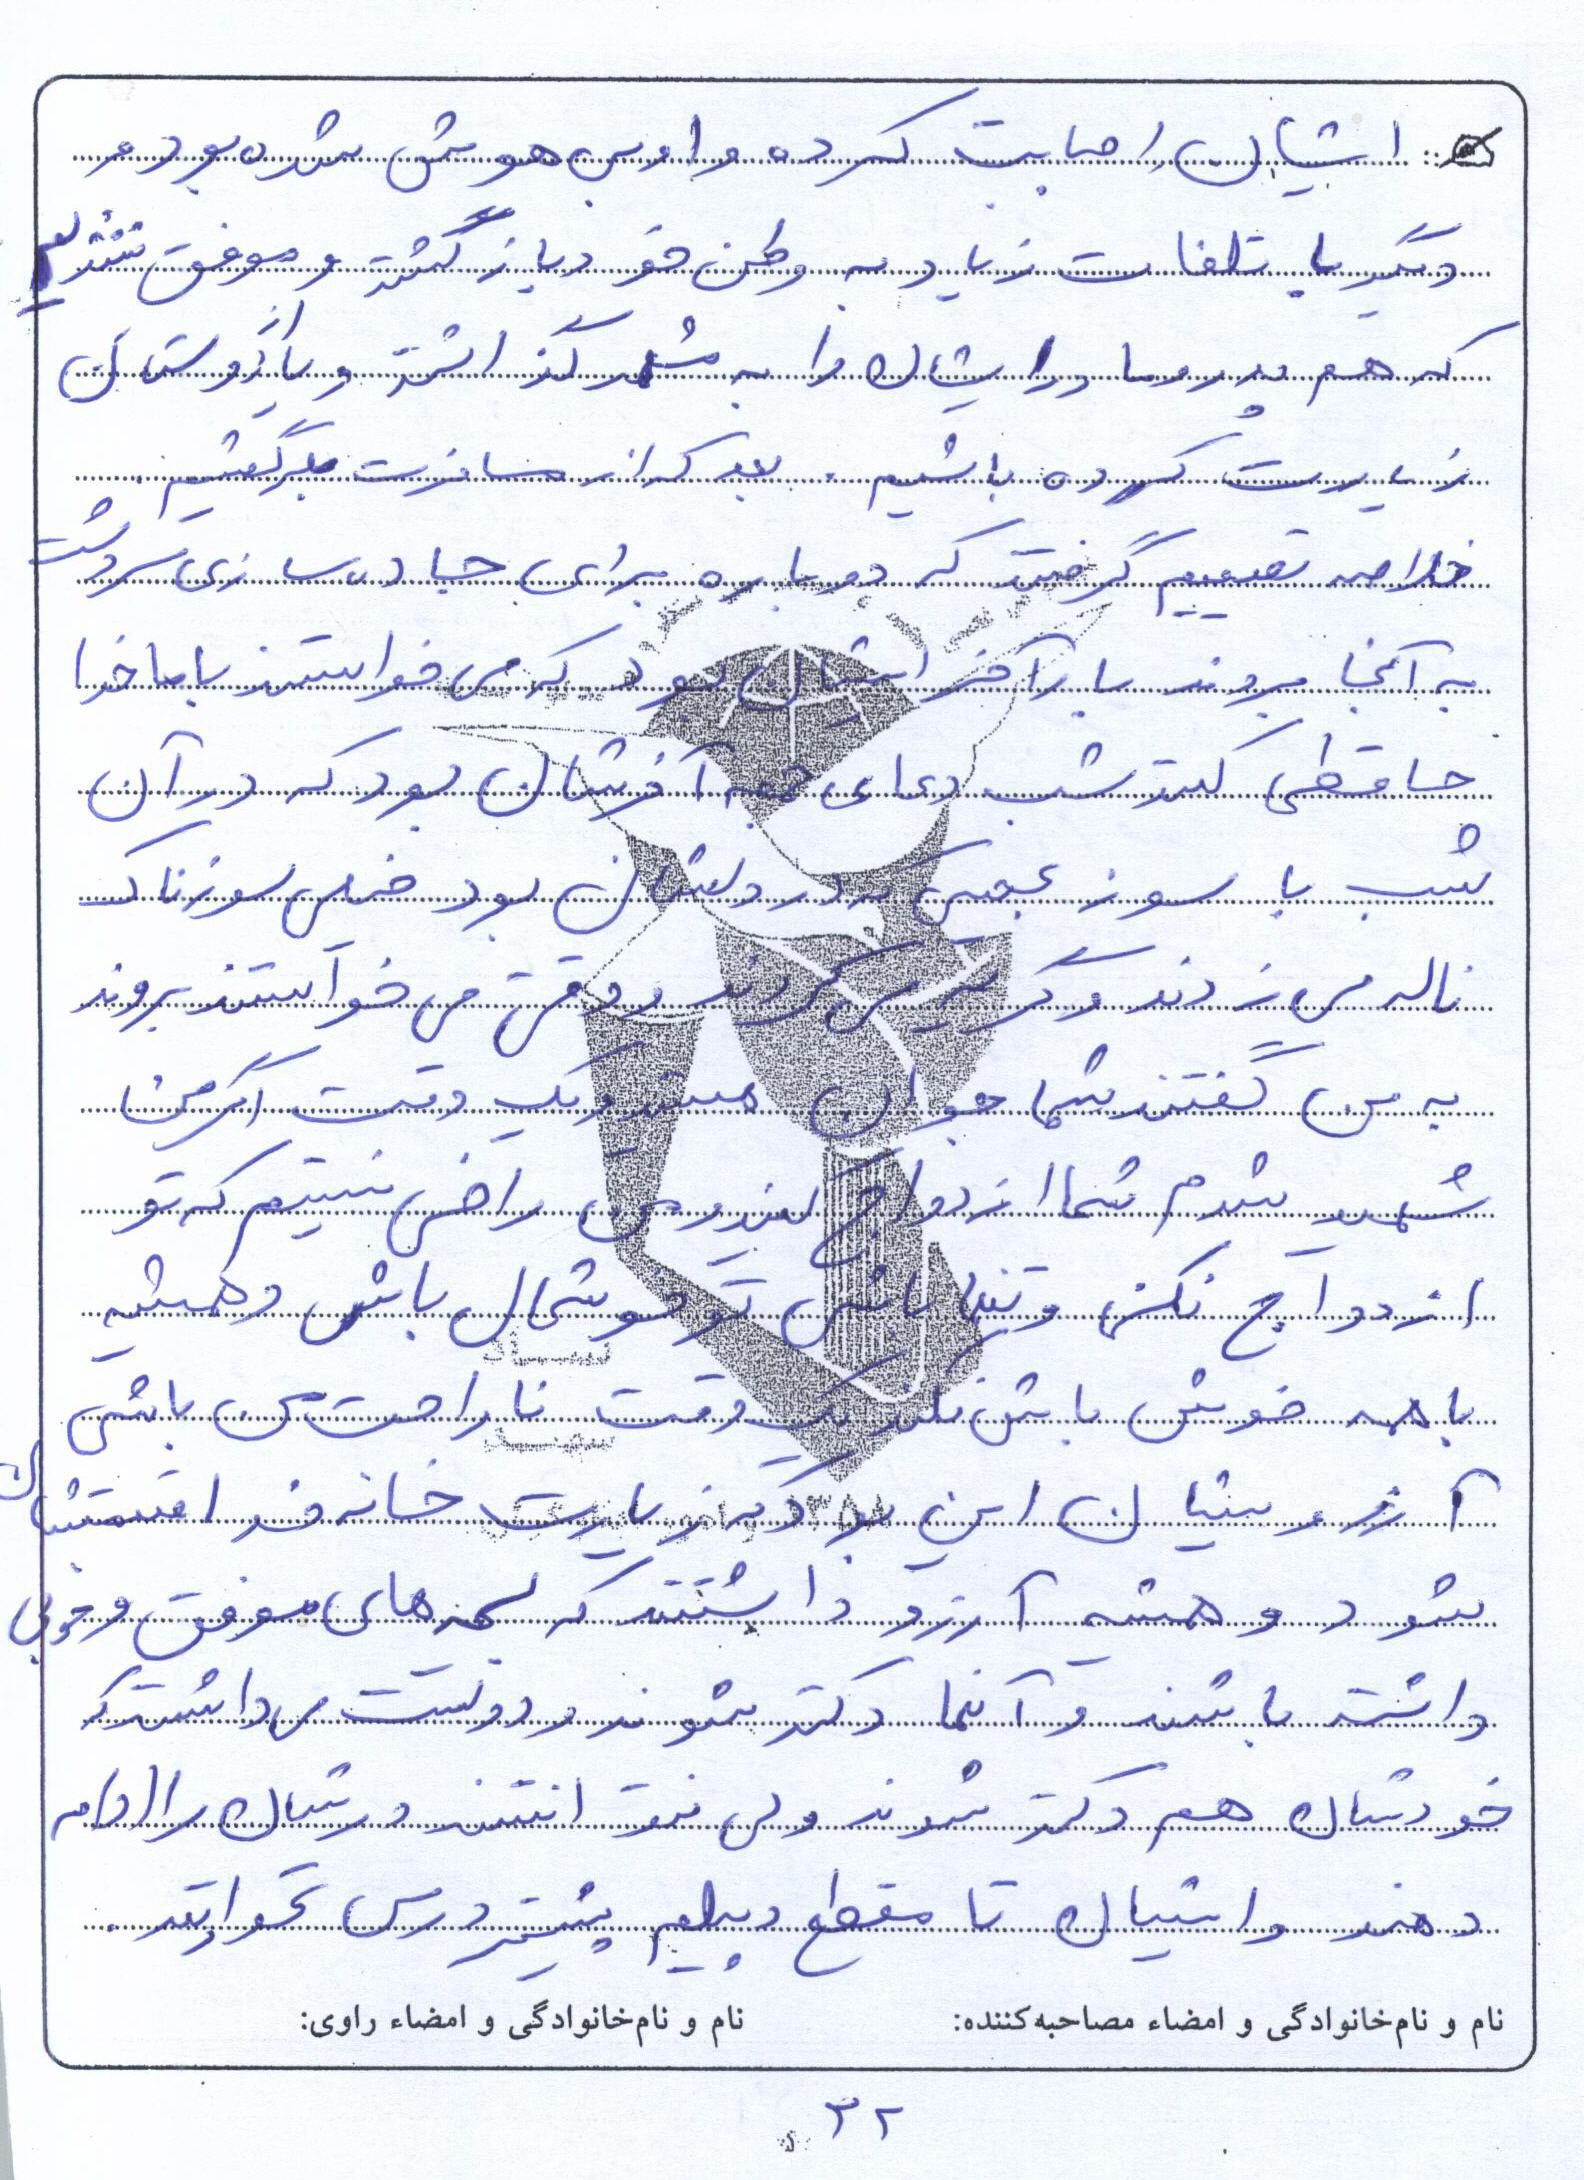 ایشان اصابت کرده و او بی هوش شده بود و
دیگر با تلفات زیاد به وطن خود باز گشته و موفق نشدیم
که هم پدر و مادر ایشان را به مشهد گذاشته و با دوستان
زیارت کرده باشیم . بعد که از مسافرت برگشتیم .
خلاصه تصمیم گرفتند که دوباره برای جاده سازی سردشت
به آنجا بروند بار آخر ایشان بود که می خواستند با ما خدا
حافظی کنند شب دعای آخرشان بود که در آن
شب با سوز عجیبی که در دلشان بود خیلی سوزناک
ناله می زدند و گریه می کردند و وقتی می خواستند بروند
به من گفتند شما جوان هستید و یک وقت اگر من
شهید شدم شما ازدواج کنید و من راضی نیستم که تو
ازدواج نکنی و تنها باشی تو خوشحال باش و همیشه
با همه خوش باش نکند یک وقت ناراحت من باشی
آرزویشان این بود که زیارت خانه خدا قسمتشان
شود و همیشه آرزو داشتند که بچه های موفق و خوبی
داشته باشند و آنها دکتر شوند و دوست می داشتند که
خودشان هم دکتر شوند ولی نتوانستند درسشان را ادامه
دهند و ایشان تا مقطع دیپلم بیشتر درس نخواندند .
نام و نام‌خانوادگی و امضاء مصاحبه‌کننده: نام و نام‌خانوادگی و امضاء راوی:
۳۲